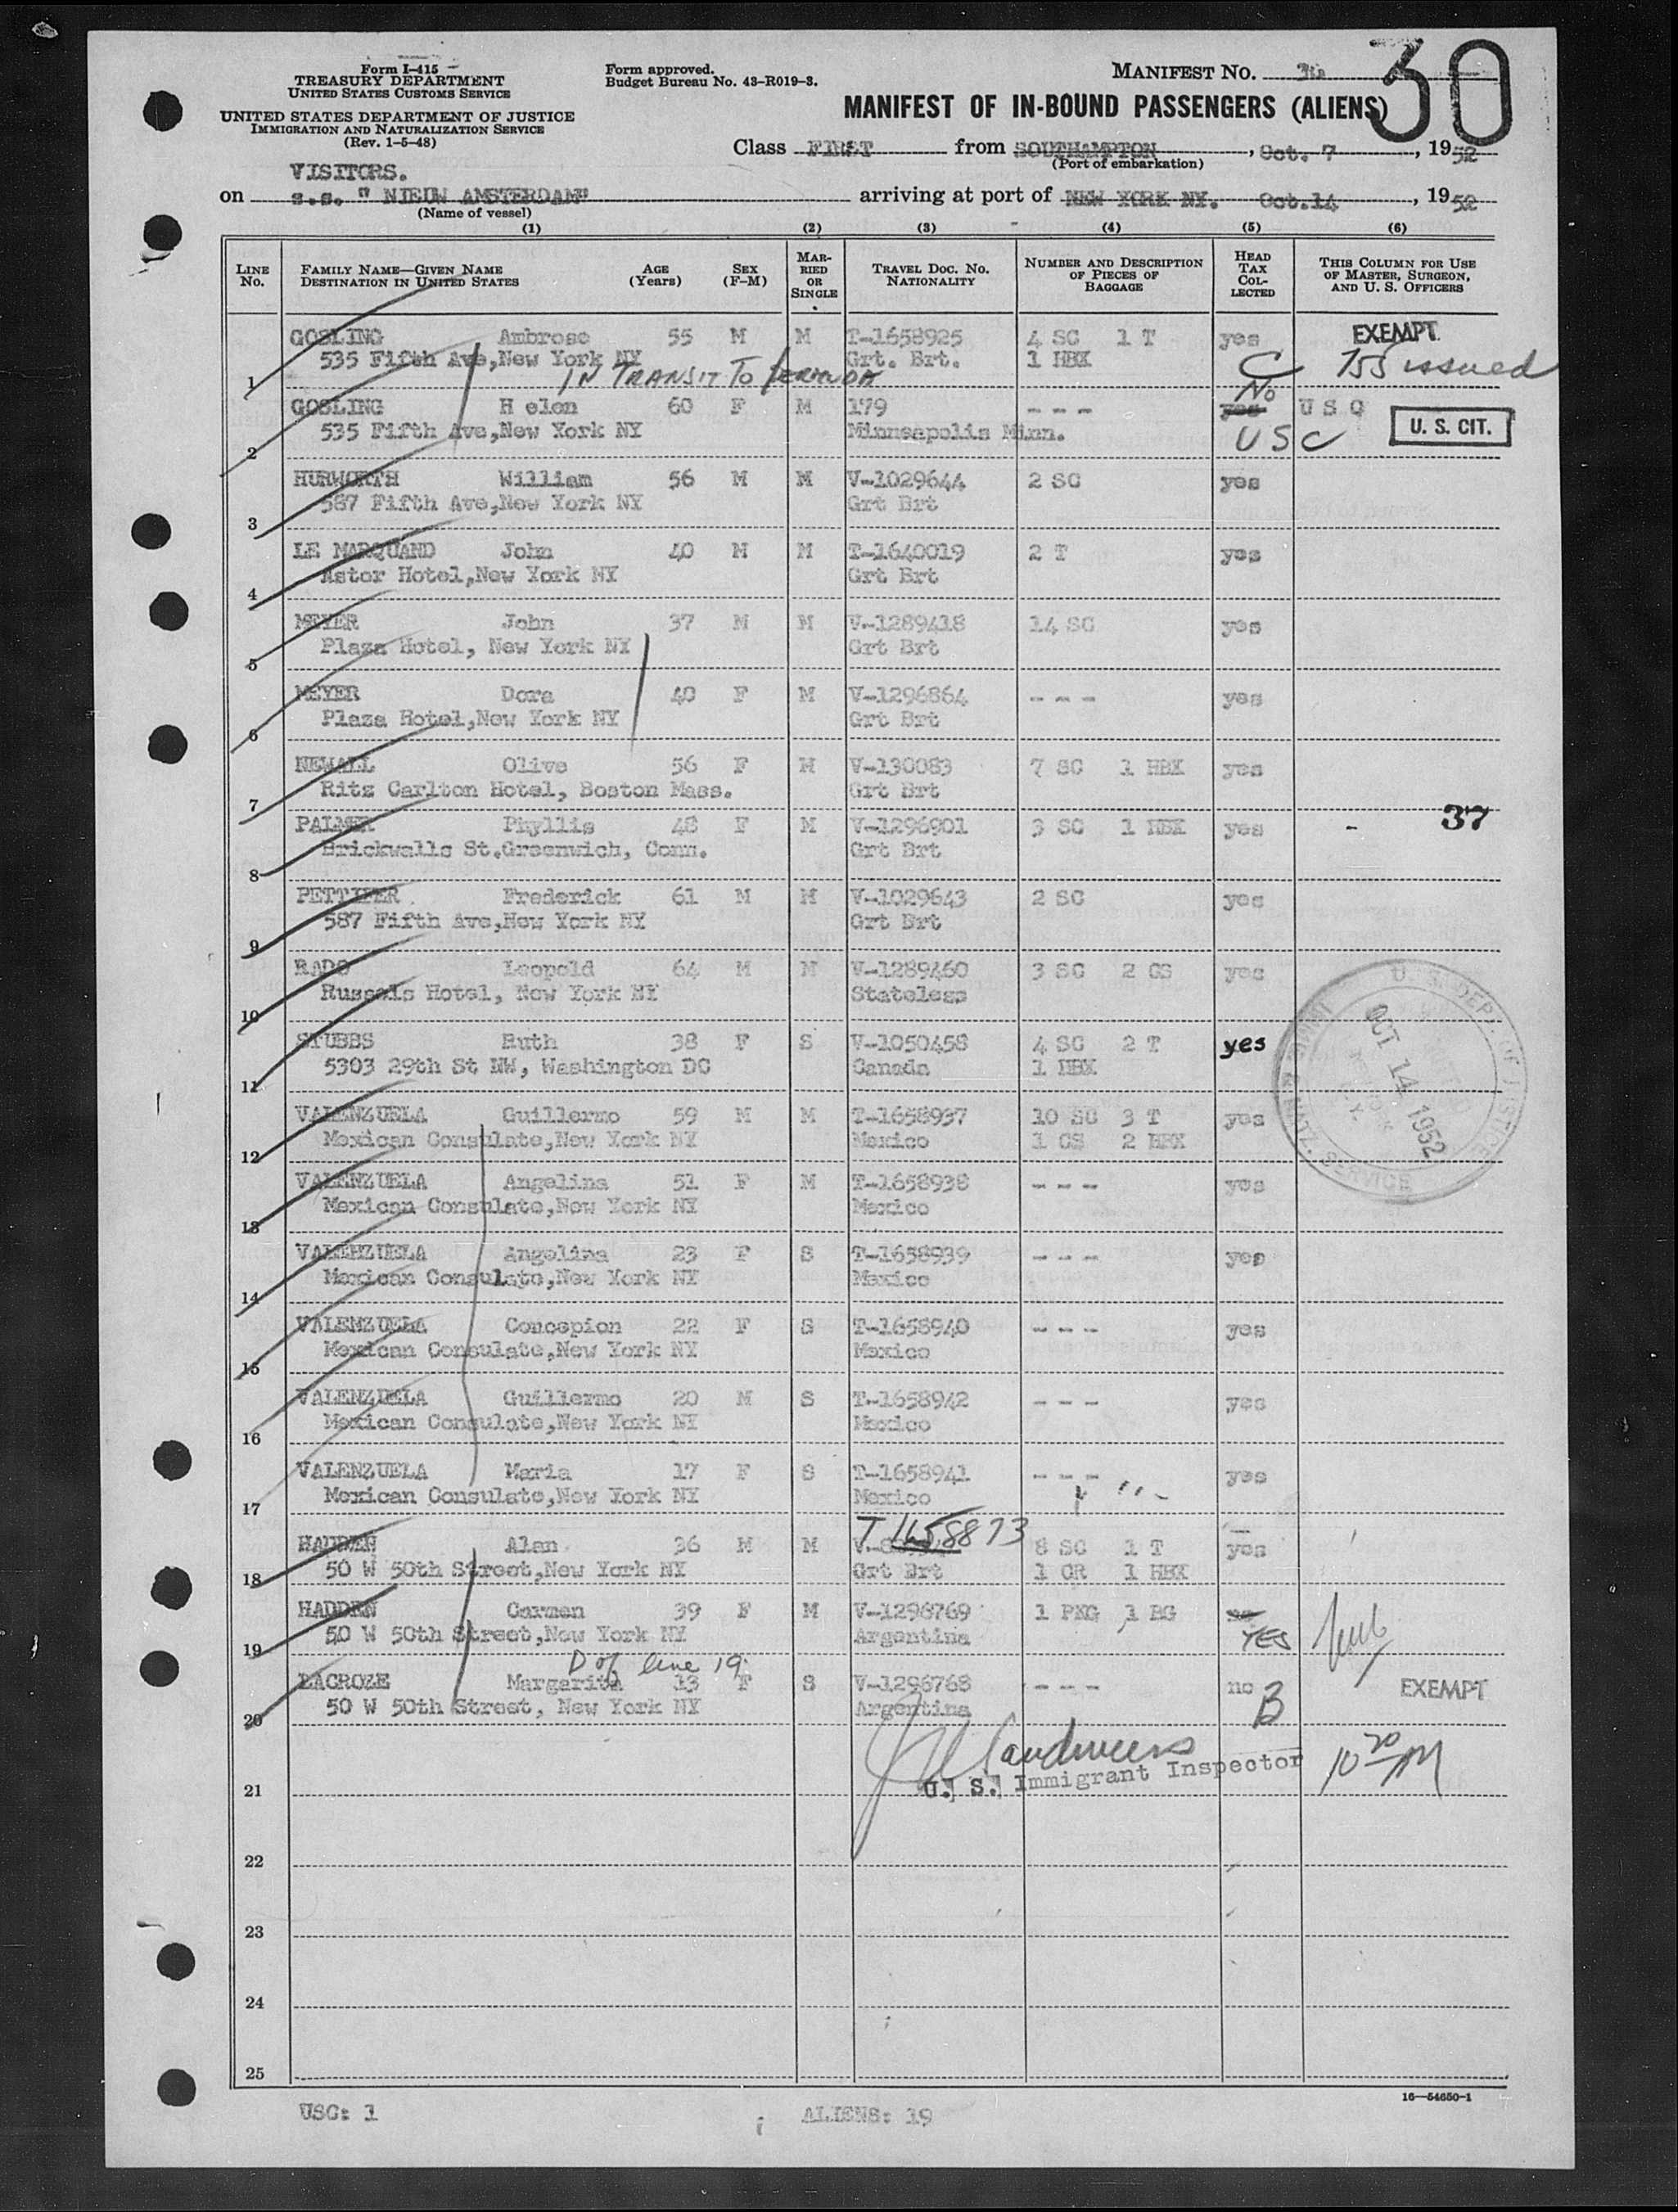 Form I-415
TREASURY DEPARTMENT
UNITED STATES CUSTOMS SERVICE
UNITED STATES DEPARTMENT OF JUSTICE
IMMIGRATION AND NATURALIZATION SERVICE
(Rev. 1-5-48)
Form approved.
Budget Bureau No. 43-R019-3.
MANIFEST NO. 30
MANIFEST OF IN-BOUND PASSENGERS (ALIENS)
Class FIRST from SOUTHAMPTON, Oct. 7, 1952
(Port of embarkation)
VISITORS.
on s.s. " NIEUW AMSTERDAM" arriving at port of NEW YORK NY. Oct.14, 1952
(Name of vessel)
(1) (2) (3) (4) (5) (6)
LINE No. FAMILY NAME—GIVEN NAME DESTINATION IN UNITED STATES AGE (Years) SEX (F-M) MARRIED OR SINGLE TRAVEL DOC. NO. NATIONALITY NUMBER AND DESCRIPTION OF PIECES OF BAGGAGE HEAD TAX COLLECTED THIS COLUMN FOR USE OF MASTER, SURGEON, AND U. S. OFFICERS
GOSLING Ambrose 55 M M T-1658925 4 SC 1 T yes EXEMPT
535 Fifth Ave,New York NY Grt. Brt. 1 HBX C 755 issued
1 IN TRANSIT TO BERMUDA
GOSLING H elen 60 F M 179 - - - yes No U S C
2 535 Fifth Ave,New York NY Minneapolis Minn. USC U. S. CIT.
HURWORTH William 56 M M V-1029644 2 SC yes
3 587 Fifth Ave,New York NY Grt Brt
LE MARQUAND John 40 M M T-1640019 2 T yes
4 Astor Hotel,New York NY Grt Brt
MEYER John 37 M M V-1289418 14 SC yes
5 Plaza Hotel, New York NY Grt Brt
MEYER Dora 40 F M V-1296864 - - - yes
6 Plaza Hotel,New York NY Grt Brt
NEWALL Olive 56 F M V-130083 7 SC 1 HBX yes
7 Ritz Carlton Hotel, Boston Mass. Grt Brt
PALMER Phyllis 48 F M V-1296901 3 SC 1 HBX yes - 37
8 Brickwalls St.Greenwich, Conn. Grt Brt
PETTIFER Frederick 61 M M V-1029643 2 SC yes
9 587 Fifth Ave,New York NY Grt Brt
RADO Leopold 64 M M V-1289460 3 SC 2 CS yes
10 Hotel, New York NY Stateless
STUBBS Ruth 38 F S V-1050458 4 SC 2 T yes
11 5303 29th St NW, Washington DC Canada 1 HBX
U. S. DEPT. OF JUSTICE
OCT 14 1952
IMMI. & NATZ. SERVICE
VALENZUELA Guillermo 59 M M T-1658937 10 SC 3 T yes
12 Mexican Consulate,New York NY Mexico 1 CS 2 HBX
VALENZUELA Angelina 51 F M T-1658938 - - - yes
13 Mexican Consulate,New York NY Mexico
VALENZUELA Angelina 23 F S T-1658939 - - - yes
14 Mexican Consulate,New York NY Mexico
VALENZUELA Concepion 22 F S T-1658940 - - - yes
15 Mexican Consulate,New York NY Mexico
VALENZUELA Guillermo 20 M S T-1658942 - - - yes
16 Mexican Consulate,New York NY Mexico
VALENZUELA Maria 17 F S T-1658941 - - - yes
17 Mexican Consulate,New York NY Mexico
T 1658873
HADDEN Alan 36 M M 8 SC 1 T yes
18 50 W 50th Street,New York NY Grt Brt 1 CR 1 HBX
HADDEN Carmen 39 F M V-1296769 1 PKG 1 BG no
19 50 W 50th Street,New York NY Argentina YES
D of line 19
LACROZE Margarita 13 F S V-1296768 - - - no B EXEMPT
20 50 W 50th Street, New York NY Argentina
U. S. Immigrant Inspector
21
22
23
24
25
16—54650-1
USC: 1 ALIENS: 19